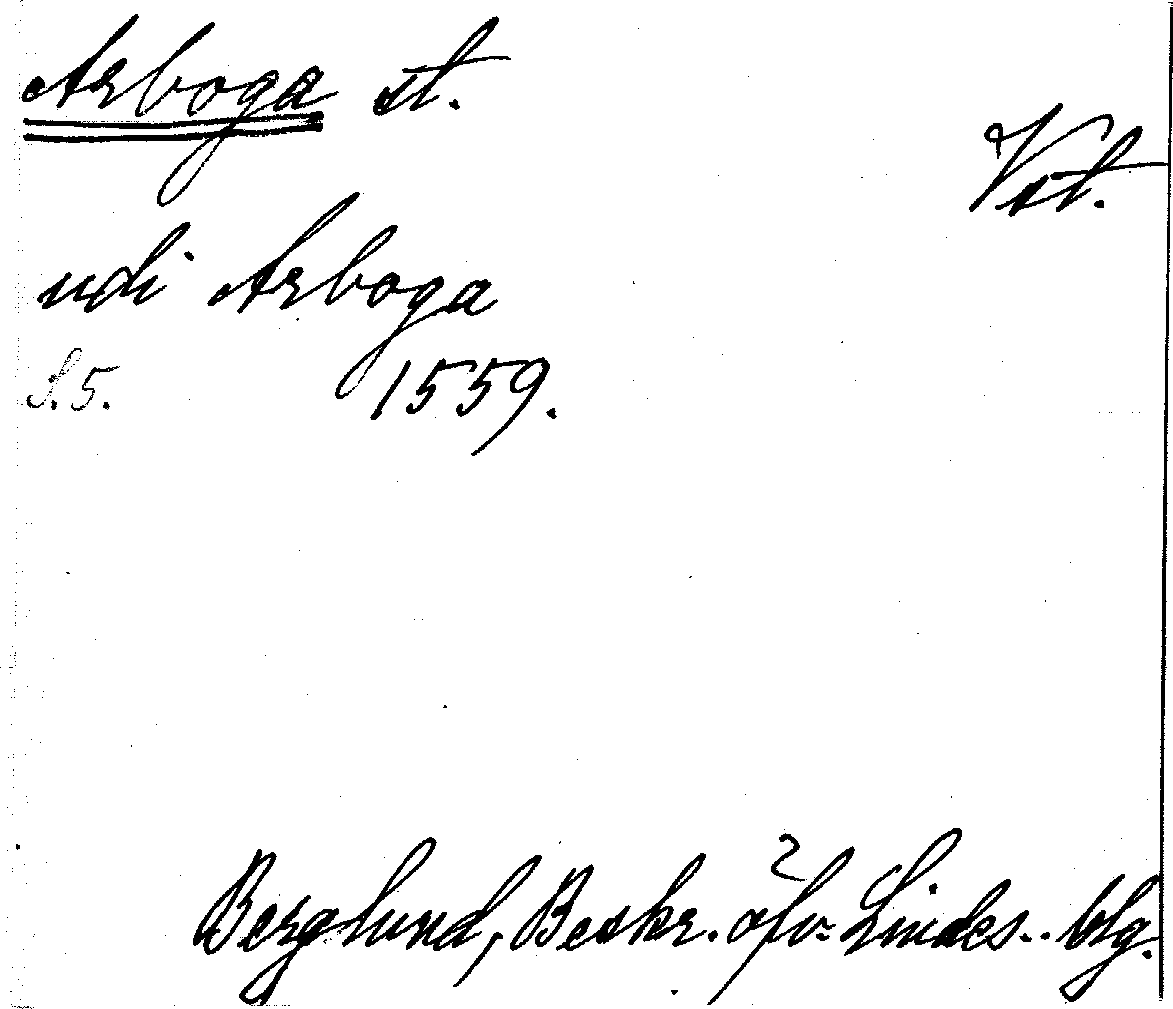 Arboga st.
Vst.
udi Arboga
S. 5. 1559.
Berglund, Beskr. öfv. Lindes.. blg.